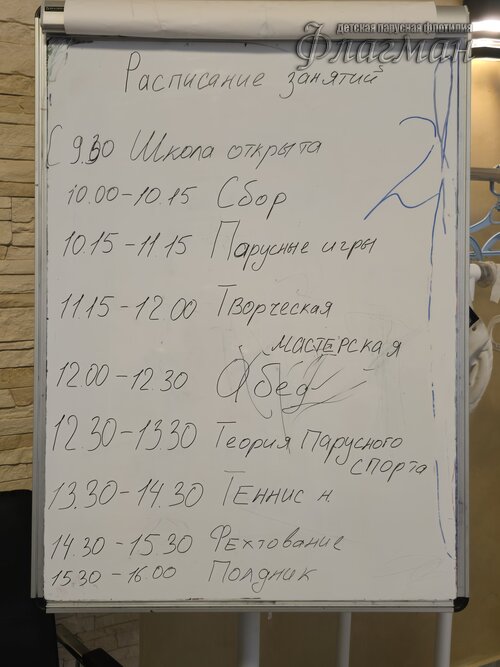 детская парусная флотилия
Флагман
Расписание занятий
С 9.30 Школа открыта
10.00-10.15 Сбор
10.15-11.15 Парусные игры
11.15-12.00 Творческая
мастерская
12.00-12.30 Обед
12.30-13.30 Теория Парусного
спорта
13.30-14.30 Теннис н.
14.30-15.30 Фехтование
15.30-16.00 Полдник